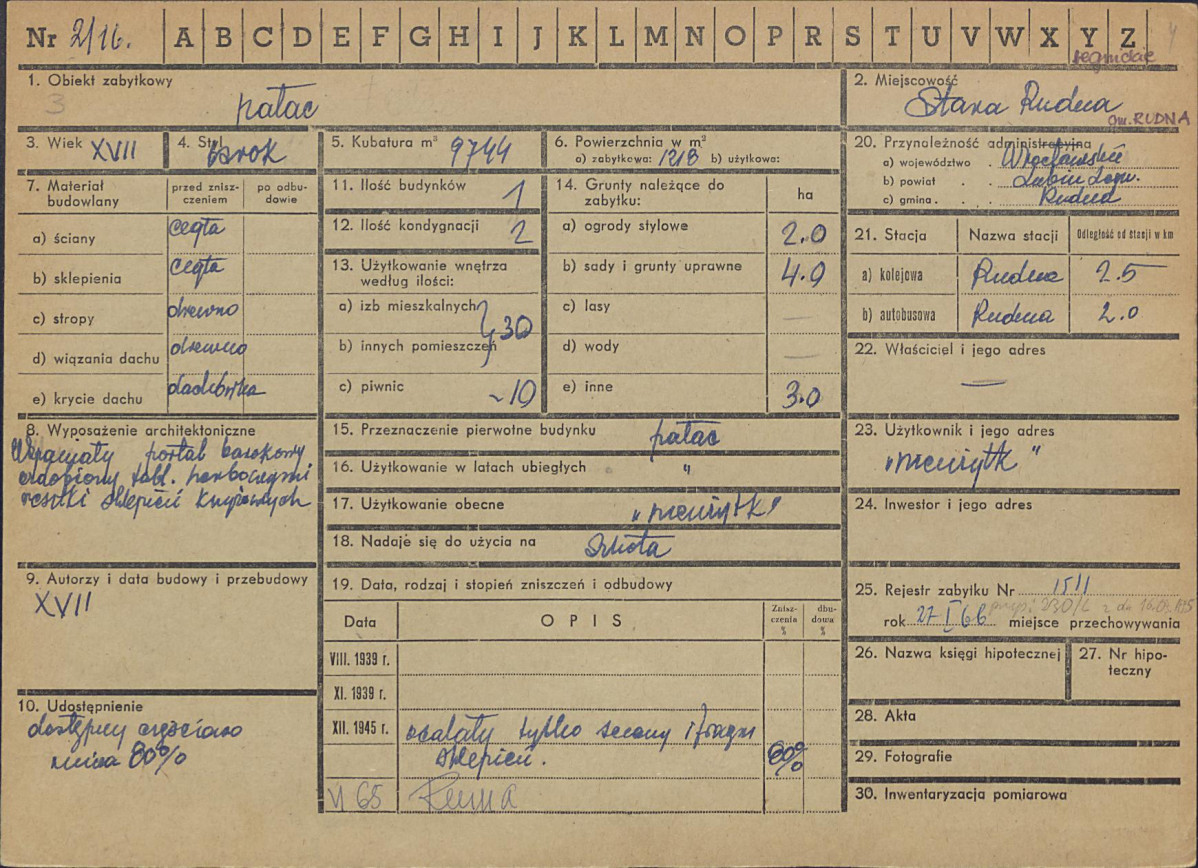 Nr 2/16. A B C D E F G H I J K L M N O P R S T U V W X Y Z
legnickie
1. Obiekt zabytkowy
3
pałac
2. Miejscowość
Stara Rudna
gm. RUDNA
3. Wiek XVII
4. Styl barok
5. Kubatura m³ 9744
6. Powierzchnia w m²
a) zabytkowa: 1218 b) użytkowa:
20. Przynależność administracyjna
a) województwo . Wrocławskie
b) powiat . . Lubin Legn.
c) gmina . . . Rudna
7. Materiał budowlany
przed zniszczeniem
po odbudowie
a) ściany cegła
b) sklepienia cegła
c) stropy drewno
d) wiązania dachu drewno
e) krycie dachu dachówka
11. Ilość budynków 1
12. Ilość kondygnacji 2
13. Użytkowanie wnętrza
według ilości:
a) izb mieszkalnych
b) innych pomieszczeń
30
c) piwnic ~10
14. Grunty należące do
zabytku:
ha
a) ogrody stylowe 2.0
b) sady i grunty uprawne 4.0
c) lasy —
d) wody —
e) inne 3.0
21. Stacja Nazwa stacji Odległość od stacji w km
a) kolejowa Rudna 2.5
b) autobusowa Rudna 2.0
22. Właściciel i jego adres
—
8. Wyposażenie architektoniczne
Wspaniały portal barokowy
ozdobiony tabl. herbowymi
resztki sklepień krzyżowych
15. Przeznaczenie pierwotne budynku pałac
16. Użytkowanie w latach ubiegłych "
17. Użytkowanie obecne "nieużytk"
18. Nadaje się do użycia na Szkoła
23. Użytkownik i jego adres
"nieużytk"
24. Inwestor i jego adres
9. Autorzy i data budowy i przebudowy
XVII
19. Data, rodzaj i stopień zniszczeń i odbudowy
Data OPIS Zniszczenia % dbudowa %
VIII. 1939 r.
XI. 1939 r.
XII. 1945 r. ocalały tylko sciany i fragm
sklepień. 80%
VI 65 Ruina
25. Rejestr zabytku Nr 1511
rok 27 I 66 miejsce przechowywania
26. Nazwa księgi hipotecznej
27. Nr hipoteczny
10. Udostępnienie
dostępny częściowo
ruina 80%
28. Akta
29. Fotografie
30. Inwentaryzacja pomiarowa